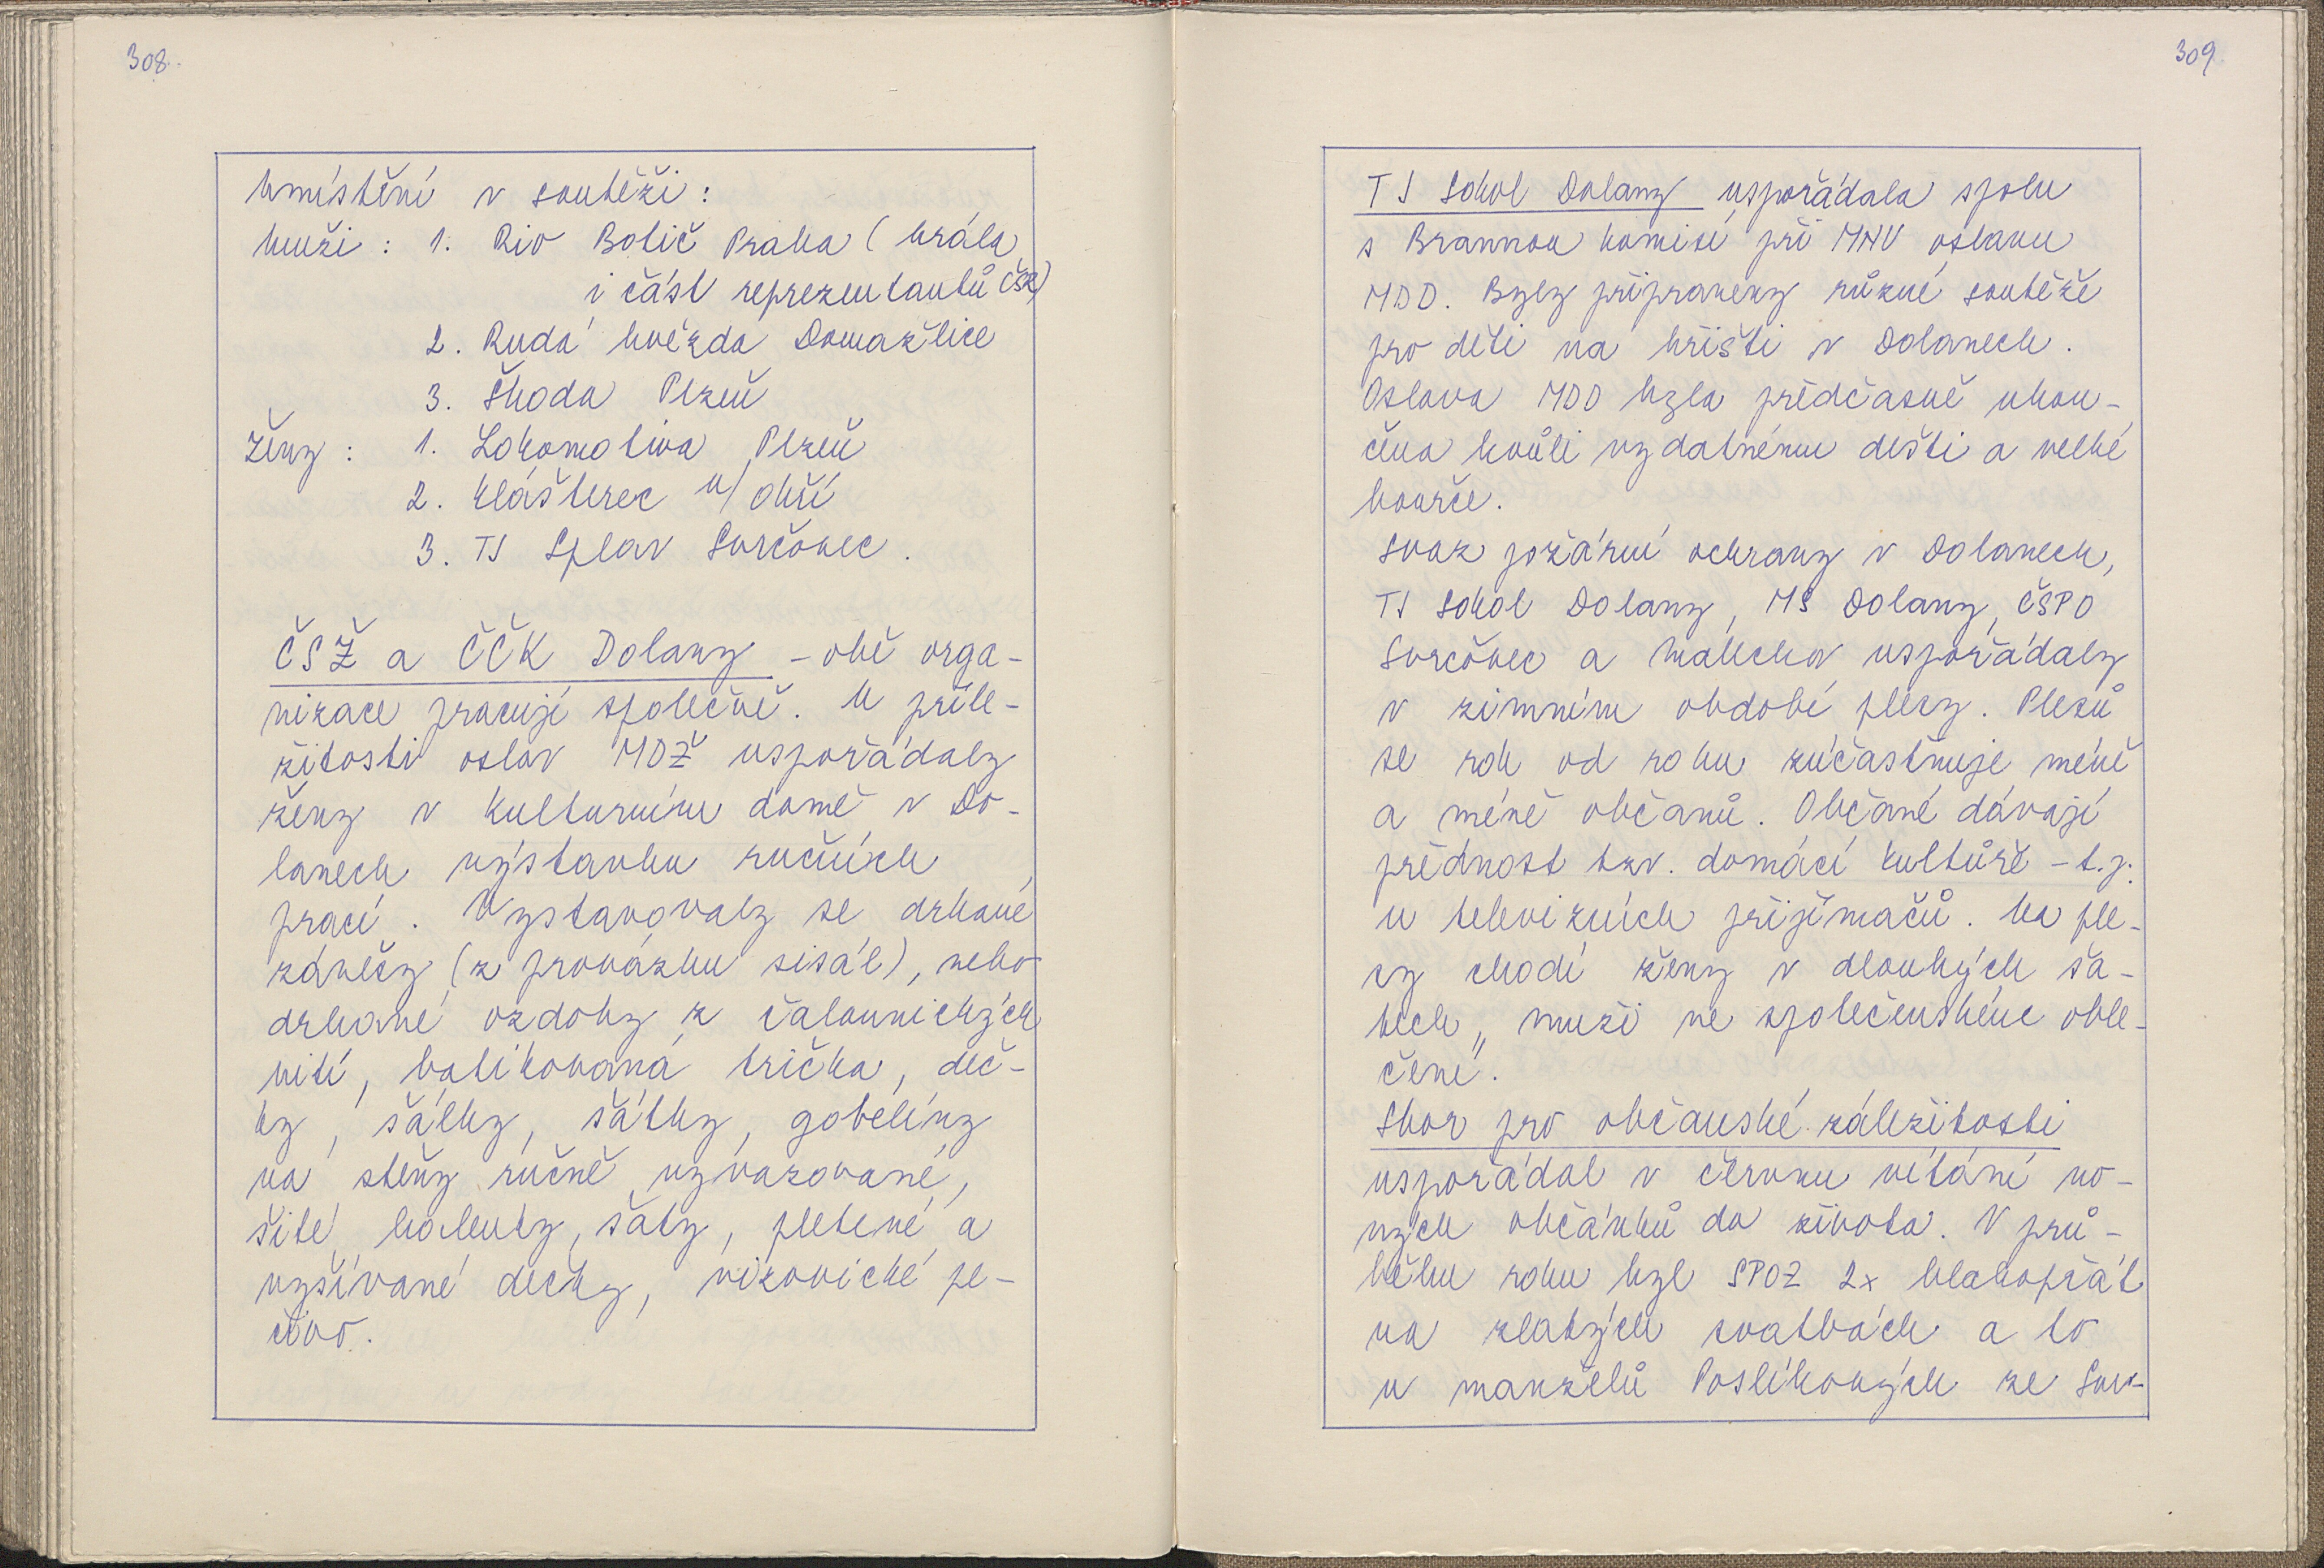 308.
Umístění v soutěži:
Muži: 1. Rio Botič Praha (hrála
i část reprezentantů ČSR)
2. Rudá hvězda Domažlice
3. Škoda Plzeň
ženy: 1. Lokomotiva Plzeň
2. Klášterec n/Ohří
3. TJ Splav Svrčovec.
ČSŽ a ČČK Dolany - obě orga-
nizace pracují společně. U příle-
žitosti oslav MDŽ uspořádaly
ženy v Kulturním domě v Do-
lanech výstavku ručních
prací. Vystavovaly se drhané
závěsy (z provázku sisál), nebo
drhané ozdoby z čalounických
nití, batikovaná trička, deč-
ky, šálky, šátky, gobelíny
na stěny ručně vyvazované,
šité kalhoty, šaty, pletené a
vyšívané dečky, vizovické pe-
čivo.
309
TJ Sokol Dolany uspořádala spolu
s Brannou komisí při MNV oslavu
MDD. Byly připraveny různé soutěže
pro děti na hřišti v Dolanech.
Oslava MDD byla předčasně ukon-
čena kvůli vydatnému dešti a velké
bouřce.
Svaz požární ochrany v Dolanech,
TJ Sokol Dolany, MS Dolany, ČSPO
Svrčovec a Malechov uspořádaly
v zimním období plesy. Plesů
se rok od roku zúčastňuje méně
a méně občanů. Občané dávají
přednost tzv. domácí kultůře - t.j.
u televizních přijímačů. Na ple-
sy chodí ženy v dlouhých ša-
tech, muži ve společenském oble-
čení.
Sbor pro občanské záležitosti
uspořádal v červnu vítání no-
vých občánků do života. V prů-
běhu roku byl SPOZ 2x blahopřát
na zlatých svatbách a to
u manželů Poslíkových ze Svr-